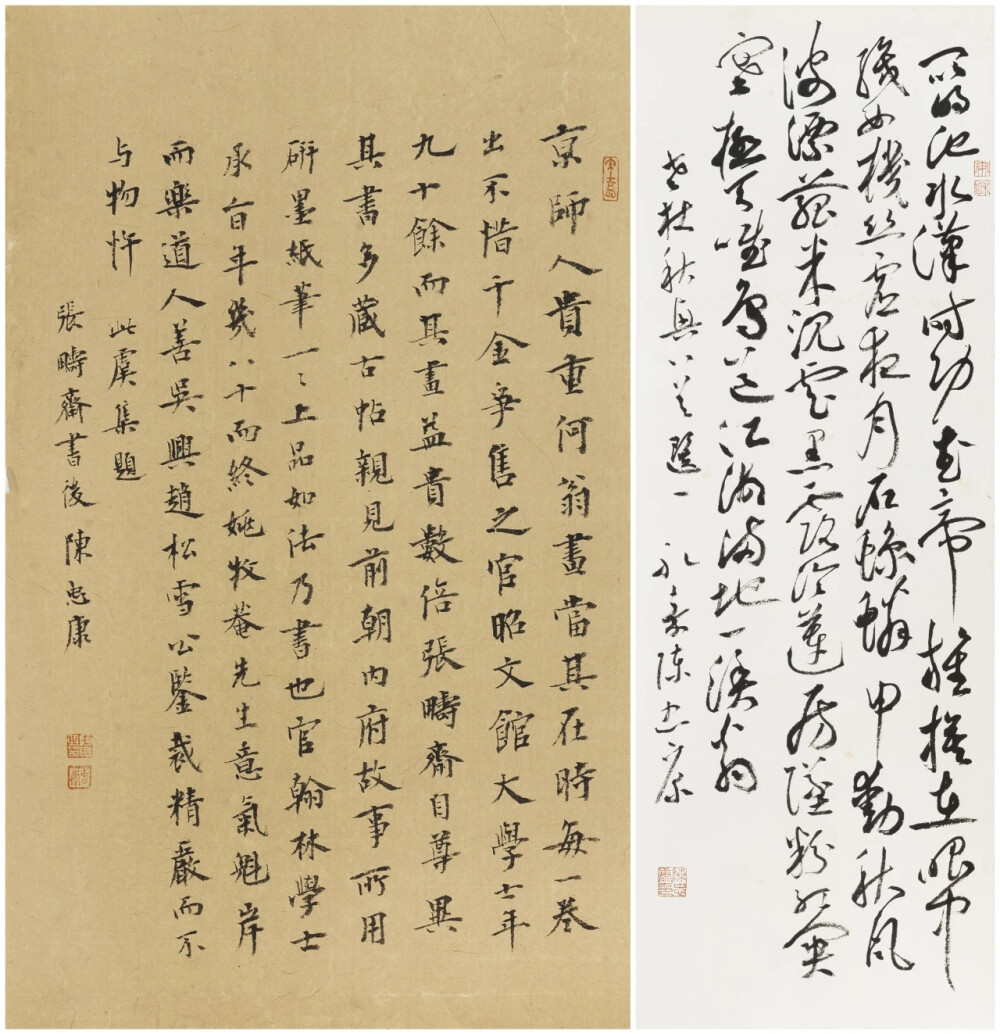 京師人貴重何翁畫當其在時每一卷
出不惜千金爭售之官昭文館大學士年
九十餘而其畫益貴數倍張疇齋自尊異
其書多藏古帖親見前朝内府故事所用
研墨紙筆一々上品如法乃書也官翰林學士
承旨年幾八十而終姚牧菴先生意氣魁岸
而樂道人善吳興趙松雪公鑒裁精嚴而不
与物忤 此虞集題
張疇齋書後 陳忠康
昆明池水漢時功武帝旌旗在眼中
織女機絲虛夜月石鯨鱗甲動秋風
波漂菰米沉雲黑露冷蓮房墜粉紅關
塞極天唯鳥道江湖滿地一漁翁
老杜秋興八首選一 永嘉陳忠康